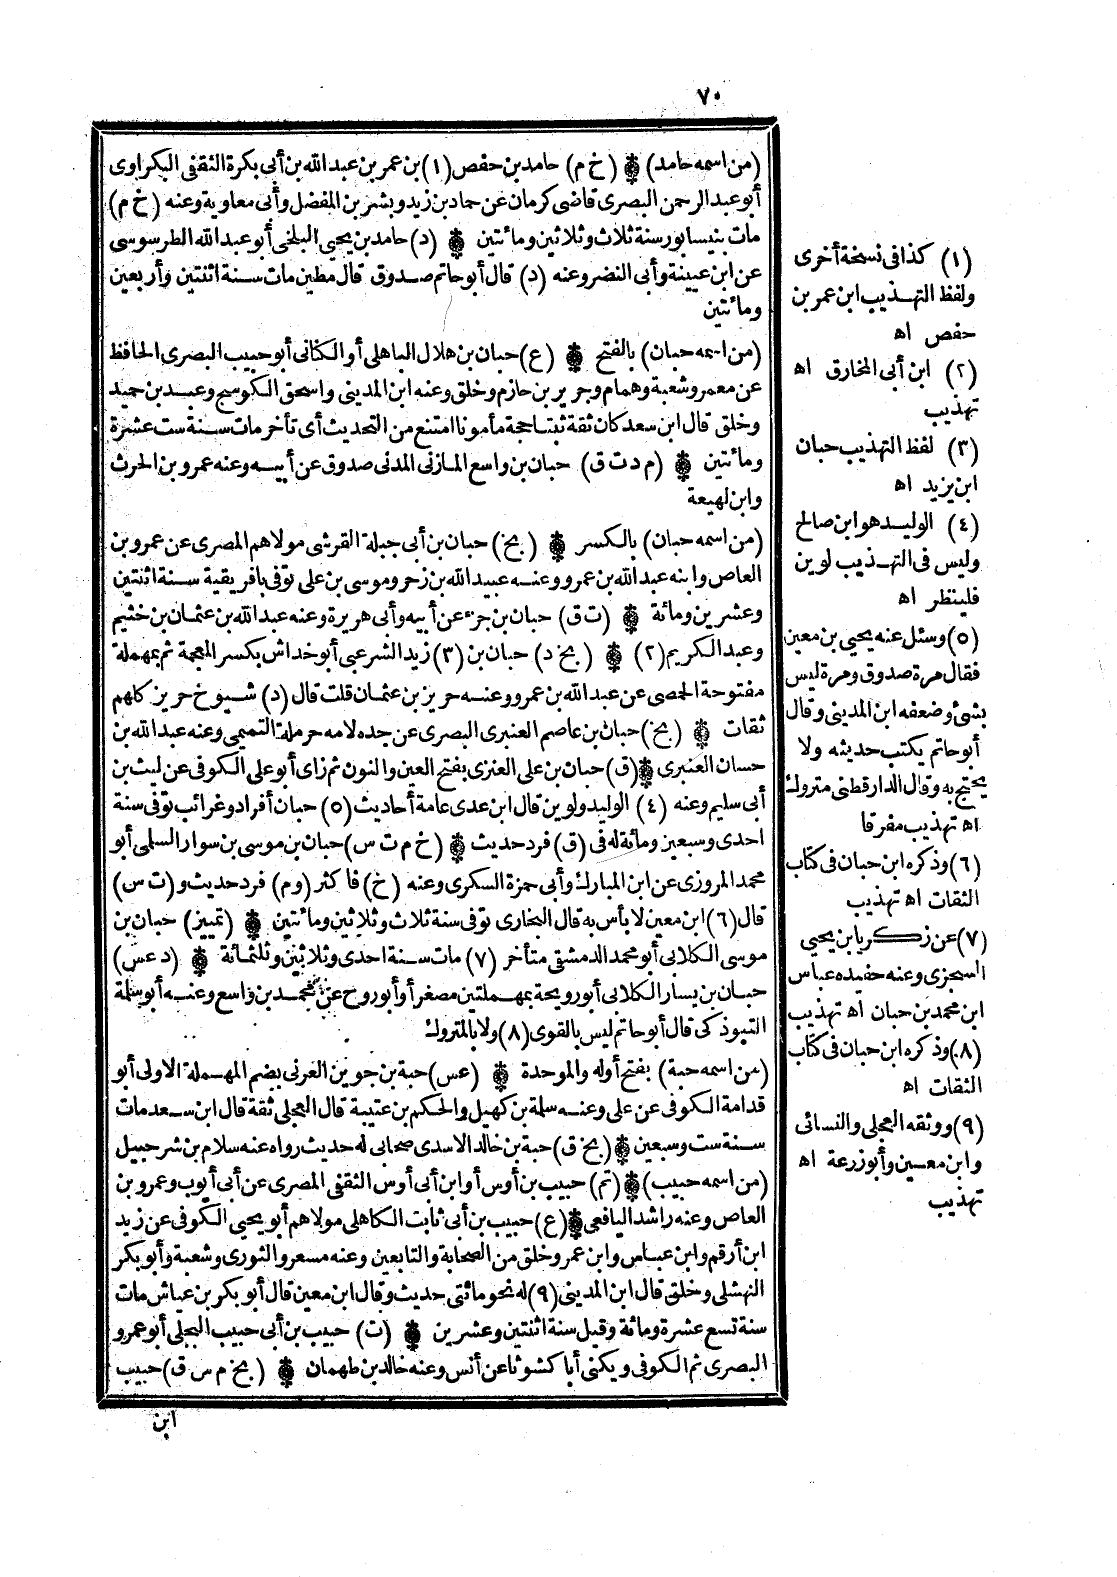 ٧٠
(من اسمه حامد) ۞ (خ م) حامد بن حفص (١) بن عمر بن عبد الله بن أبى بكرة الثقفى البكراوى
أبو عبد الرحمن البصرى قاضى كرمان عن حماد بن زيد وبشر بن المفضل وأبى معاوية وعنه (خ م)
مات بنيسابور سنة ثلاث وثلاثين ومائتين ۞ (د) حامد بن يحيى البلخى أبو عبد الله الطرسوسى
عن ابن عيينة وأبى النضر وعنه (د) قال أبو حاتم صدوق قال مطين مات سنة اثنتين وأربعين
ومائتين
(من اسمه حبان) بالفتح ۞ (ع) حبان بن هلال الباهلى أو الكنانى أبو حبيب البصرى الحافظ
عن معمر وشعبة وهمام وجرير بن حازم وخلق وعنه ابن المدينى واسحق الكوسج وعبد بن حميد
وخلق قال ابن سعد كان ثقة ثبتا حجة مأمونا امتنع من التحديث أى تأخر مات سنة ست عشرة
ومائتين ۞ (م د ت ق) حبان بن واسع المازنى المدنى صدوق عن أبيه وعنه عمرو بن الحرث
وابن لهيعة
(من اسمه حبان) بالكسر ۞ (بخ) حبان بن أبى جبلة القرشى مولاهم المصرى عن عمرو بن
العاص وابنه عبد الله بن عمرو وعنه عبيد الله بن زحر وموسى بن على توفى بافريقية سنة اثنتين
وعشرين ومائة ۞ (ت ق) حبان بن جزء عن أبيه وأبى هريرة وعنه عبد الله بن عثمان بن خثيم
وعبد الكريم (٢) ۞ (بخ د) حبان بن (٣) زيد الشرعبى أبو خداش بكسر المعجمة ثم بمهملة
مفتوحة الحمصى عن عبد الله بن عمرو وعنه حريز بن عثمان قلت قال (د) شيوخ حريز كلهم
ثقات ۞ (بخ) حبان بن عاصم العنبرى البصرى عن جده لامه حرملة التميمى وعنه عبد الله بن
حسان العنبرى ۞ (ق) حبان بن على العنزى بفتح العين والنون ثم زاى أبو على الكوفى عن ليث بن
أبى سليم وعنه (٤) الوليد ولوين قال ابن عدى عامة أحاديث (٥) حبان أفراد وغرائب توفى سنة
احدى وسبعين ومائة له فى (ق) فرد حديث ۞ (خ م ت س) حبان بن موسى بن سوار السلمى أبو
محمد المروزى عن ابن المبارك وأبى حمزة السكرى وعنه (خ) فاكثر (وم) فرد حديث و(ت س)
قال (٦) ابن معين لا بأس به قال البخارى توفى سنة ثلاث وثلاثين ومائتين ۞ (تمييز) حبان بن
موسى الكلابى أبو محمد الدمشقى متأخر (٧) مات سنة احدى وثلاثين وثلثمائة ۞ (د عس)
حبان بن يسار الكلابى أبو رويحة بمهملتين مصغرا وأبو روح عن محمد بن واسع وعنه أبو سلمة
التبوذكى قال أبو حاتم ليس بالقوى (٨) ولا بالمتروك
(من اسمه حبة) بفتح أوله والموحدة ۞ (عس) حبة بن جوين العرنى بضم المهملة الاولى أبو
قدامة الكوفى عن على وعنه سلمة بن كهيل والحكم بن عتيبة قال العجلى ثقة قال ابن سعد مات
سنة ست وسبعين ۞ (بخ ق) حبة بن خالد الاسدى صحابى له حديث رواه عنه سلام بن شرحبيل
(من اسمه حبيب) ۞ (تم) حبيب بن أوس أو ابن أبى أوس الثقفى المصرى عن أبى أيوب وعمرو بن
العاص وعنه راشد اليافعى ۞ (ع) حبيب بن أبى ثابت الكاهلى مولاهم أبو يحيى الكوفى عن زيد
ابن أرقم وابن عباس وابن عمر وخلق من الصحابة والتابعين وعنه مسعر والثورى وشعبة وأبو بكر
النهشلى وخلق قال ابن المدينى (٩) له نحو مائتى حديث وقال ابن معين قال أبو بكر بن عياش مات
سنة تسع عشرة ومائة وقيل سنة اثنتين وعشرين ۞ (ت) حبيب بن أبى حبيب البجلى أبو عمرو
البصرى ثم الكوفى ويكنى أبا كشوثا عن أنس وعنه خالد بن طهمان ۞ (بخ م س ق) حبيب
ابن
(١) كذا فى نسخة أخرى
ولفظ التهذيب ابن عمر بن
حفص اه
(٢) ابن أبى المخارق اه
تهذيب
(٣) لفظ التهذيب حبان
ابن يزيد اه
(٤) الوليد هو ابن صالح
وليس فى التهذيب لوين
فلينظر اه
(٥) وسئل عنه يحيى بن معين
فقال مرة صدوق ومرة ليس
بشئ وضعفه ابن المدينى وقال
أبو حاتم يكتب حديثه ولا
يحتج به وقال الدارقطنى متروك
اه تهذيب مفرقا
(٦) وذكره ابن حبان فى كتاب
الثقات اه تهذيب
(٧) عن زكريا بن يحيى
السجزى وعنه حفيده عباس
ابن محمد بن حبان اه تهذيب
(٨) وذكره ابن حبان فى كتاب
الثقات اه
(٩) ووثقه العجلى والنسائى
وابن معين وأبو زرعة اه
تهذيب